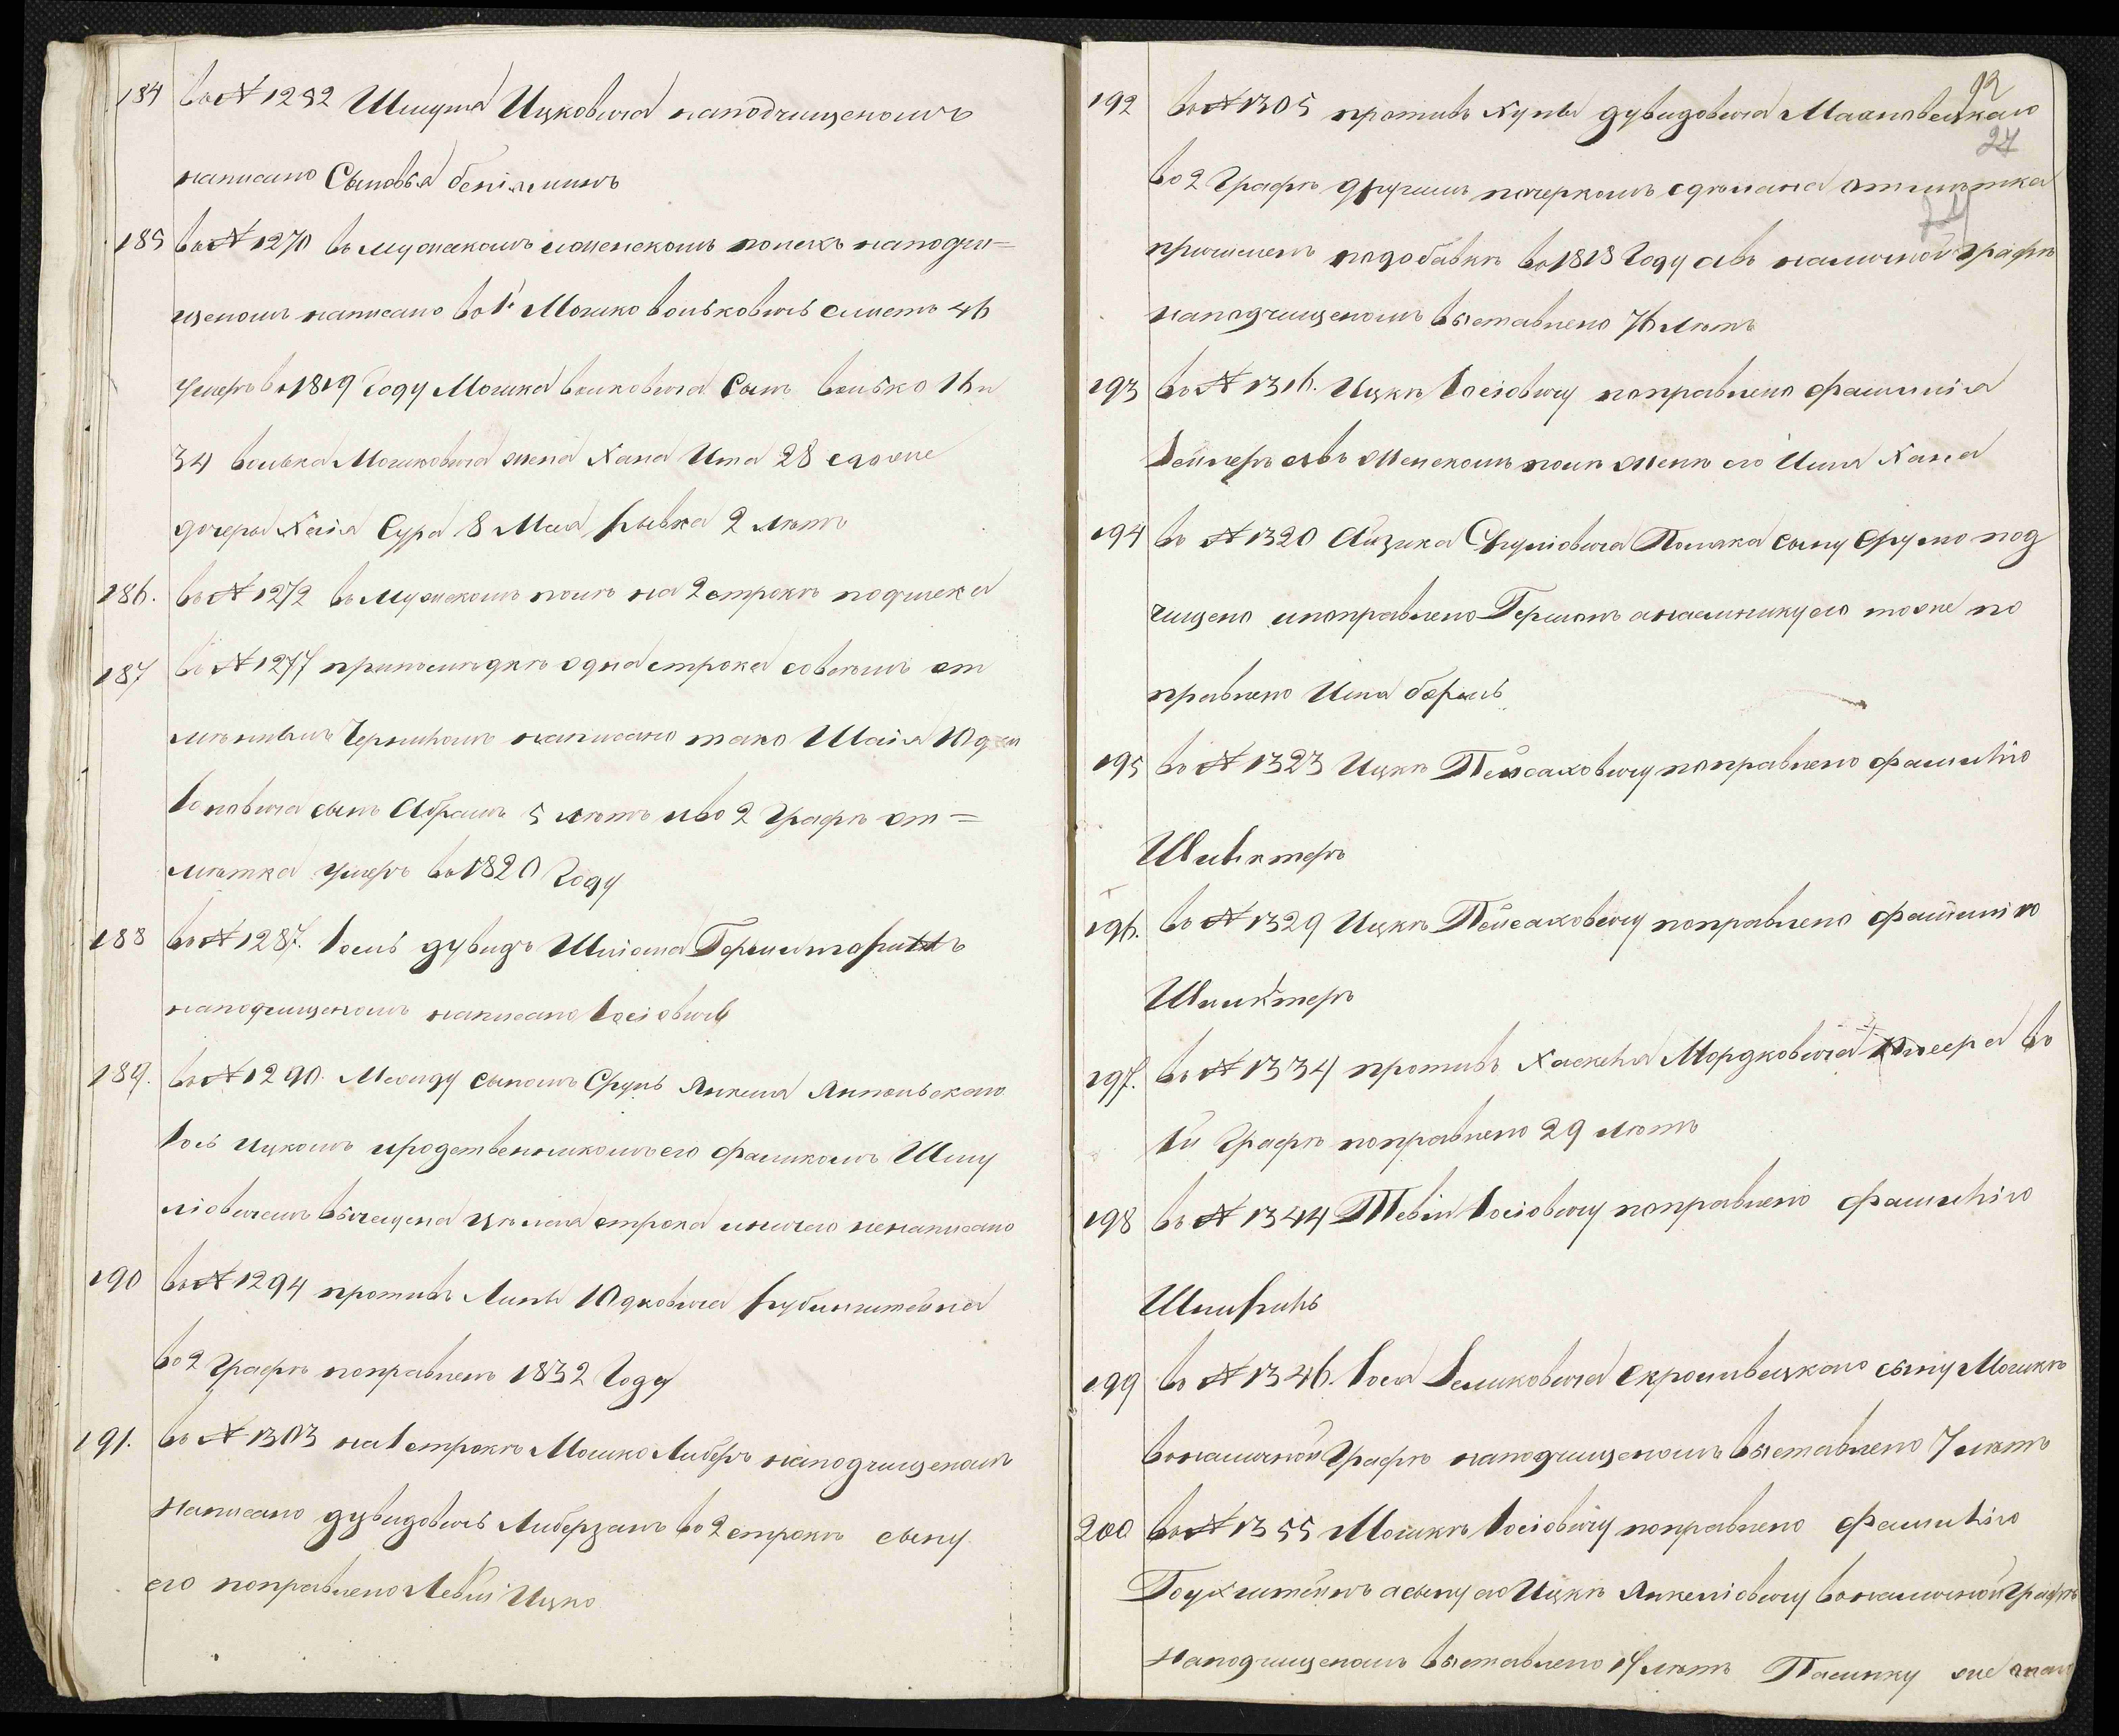 184 въ № 1252 Шмуля Ицковича наподчищеномъ
написано Сыновья беніяминъ
185 въ № 1270 въ мужескомъ иженскомъ полехъ наподчи=
щеномъ написано въ 1й Мошко Вольковичъ слиетъ 46
умеръ въ 1819 Году Мошка Волковича Сынъ Волько 16 и
34 Волька Мошковича жена Хана Ита 28 егоже
дочеры Хаія Сура 8 Мая Рывка 2 лѣтъ
186. въ № 1272 въ Мужескомъ полѣ на 2 строкѣ подчистка
187 въ № 1277 припослѣдкѣ одна строка совсѣмъ от
мѣннымъ Чернилomъ написано тако Шаія Юдки
Іоновича сынъ Абрамъ 5 лѣтъ иво 2 Графѣ от=
мѣтка умеръ въ 1820 Году
188 въ № 1287. Іось дувидъ Шліома Горынштейнъ
наподчищеномъ написано Іосіовичъ
189. въ № 1290. Между сыномъ Сруль Янкеля Ямпольскаго
Іось Ицкомъ иродственникомъ его Фаликомъ Шму
ліовичемъ вычищена цѣлая строка иничего ненаписано
190 въ № 1294 противъ Липы Юдковича Рубинштейна
во 2 Графѣ поправленъ 1832 Годъ
191. въ № 1303 на 1 строкѣ Мошко Либеръ наподчищеномъ
Написано дувидовичъ Либерзанъ во 2 строкѣ сыну
его поправлено Левій Ицко
12
27
192 въ № 1305 противъ Хуны дувидовича Малновецкаго
во 2 Графѣ другимъ почеркомъ сдѣлана отмѣтка
причисленъ подобавкѣ въ 1818 Году авъ наличной Графѣ
наподчищеномъ выставлено 76 лѣтъ
193 въ № 1316. Ицкѣ Іосіовичу поправлено фамилія
Зейгеръ авъ женскомъ полѣ женѣ его Ципа Хана
194 въ № 1320 Айзика Сруліовича Поляка сыну Срулю под
чищено ипоправлено Гершонъ аплемяннику его тоже по
правлено Цина борухъ
195 въ № 1323 Ицкѣ Пейсаховичу поправлено фамилію
Шлихтеръ
196. въ № 1329 Ицкѣ Пейсаховичу поправлено фамилію
Шлихтеръ
197. въ № 1334 противъ Хаскеля Мордковича въ
1й Графѣ поправлено 29 лѣтъ
198 въ № 1344 Тевіи Іосіовичу поправлено Фамилію
199 въ № 1346. Іося Зеликовича Скромивецкаго сыну Мошкѣ
воналичной Графѣ наподчищеномъ выставлено 7 лѣтъ
200 въ № 1355 Мошкѣ Іосіовичу поправлено Фамилію
асыну его Ицкѣ Янкеліовичу воналичной Графѣ
Наподчищеномъ выставлено 14 лѣтъ Пасынку